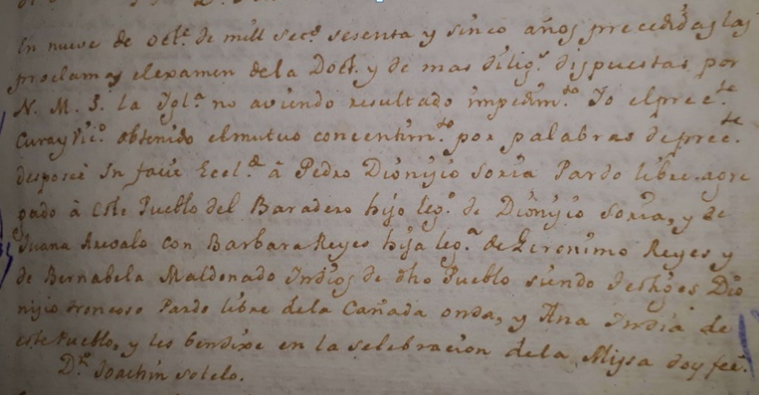 En nueve de oct.e de mill set.s sesenta y sinco años precedidas las
proclamas el examen de la Doct. y de mas dilig.s dispuestas por
N. M. S. la Igl.a no aviendo resultado impedim.to Yo el pres.te
Cura y Vic.o obtenido el mutuo consentim.to por palabras de pres.te
desposé in facie Eccl.e â Pedro Dionijio Soria Pardo libre agre
gado â este Pueblo del Baradero hijo leg.o de Dionijio Soria, y de
Juana Arevalo con Barbara Reyes hija leg.a de Geronimo Reyes y
de Bernabela Maldonado Indios de dho Pueblo siendo testigos Dio
nijio troncoso Pardo libre de la Cañada onda, y Ana India de
este Pueblo, y les bendixe en la selebracion de la Missa doy fee.
D.n Joachin sotelo.